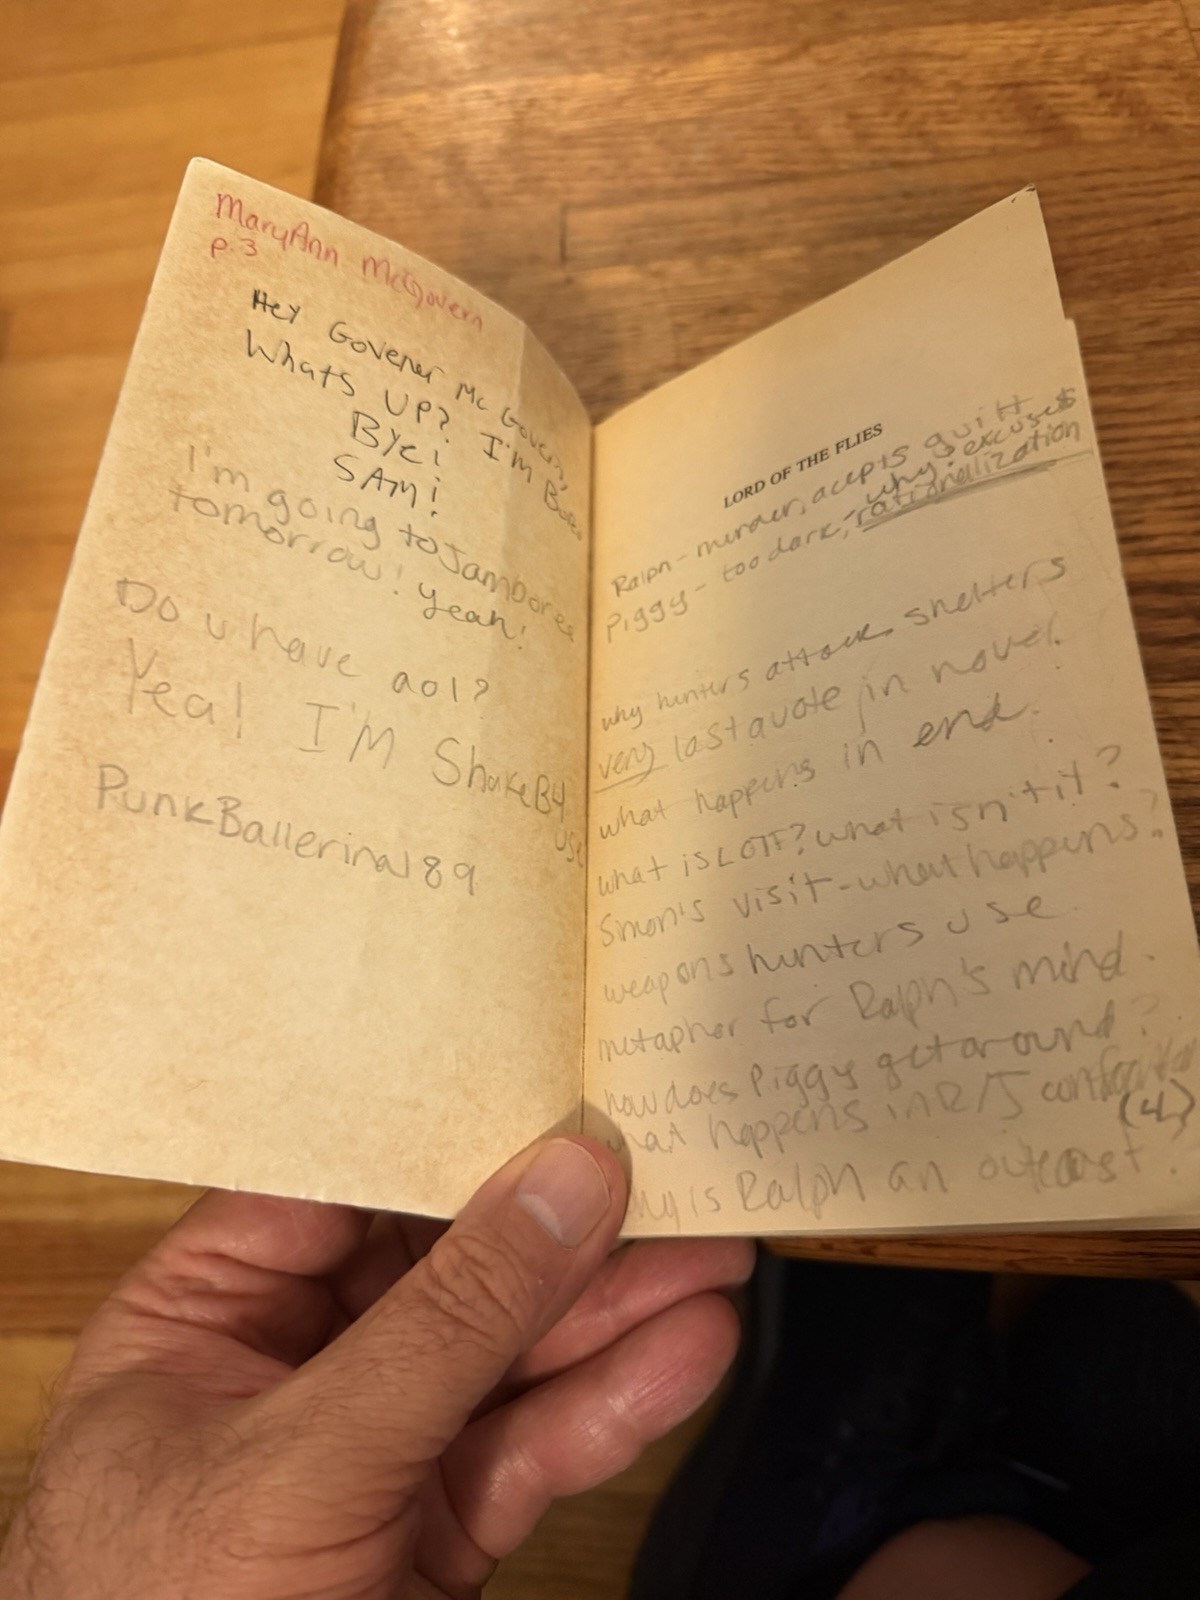 MaryAnn McGovern
p. 3
Hey Govener McGovern,
Whats UP? I'm Bored
Bye!
SAM!
I'm going to Jamboree
tomorrow! Yeah!
Do u have aol?
Yea! I'M ShakeB4
use
PunkBallerina189
LORD OF THE FLIES
Ralph - murder, acepts guilt
why: excuses
Piggy - too dark, rationalization
why hunters attack shelters
very last quote in novel.
what happens in end.
what is LOTF? what isn't it?
Simon's visit - what happens?
weapons hunters use
metapher for Ralph's mind.
how does Piggy get around?
what happens in R/J
(4)
why is Ralph an outcast?